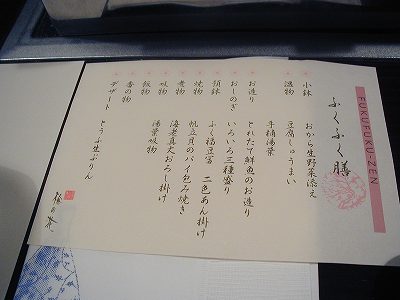 FUKUFUKU-ZEN
ふくふく膳
小鉢 おから生野菜添え
温物 豆腐しゅうまい
手桶湯葉
お造り とれたて鮮魚のお造り
おしのぎ いろいろ三種盛り
預鉢 ふく福豆富 二色あん掛け
焼物 帆立貝のパイ包み焼き
煮物 海老真丈おろし掛け
吸物 湯葉吸物
飯物
香の物
デザート とうふ生ぷりん